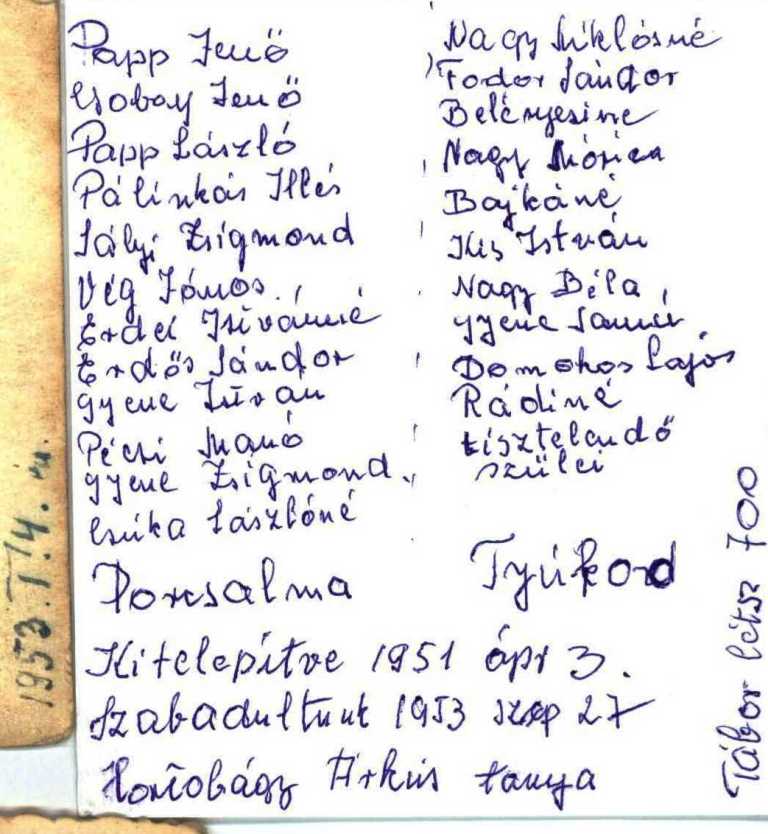 Papp Jenő
Csobay Jenő
Papp László
Pálinkás Illés
Sályi Zsigmond
Vég János
Erdei Istvánné
Erdős Sándor
Gyene István
Pécsi Manó
Gyene Zsigmond
Csúka Lászlóné
Porcsalma
Nagy Miklósné
Fodor Sándor
Belényesine
Nagy Mórica
Bajkáné
Kis István
Nagy Béla
Gyene
Domokos Lajos
Rádiné
tisztelendő
szülei
Tyúkod
Kitelepítve 1951 ápr 3.
Szabadultunk 1953 szep 27
Hortobágy Árkus tanya
Tábor létsz 700
1953. I. 4.